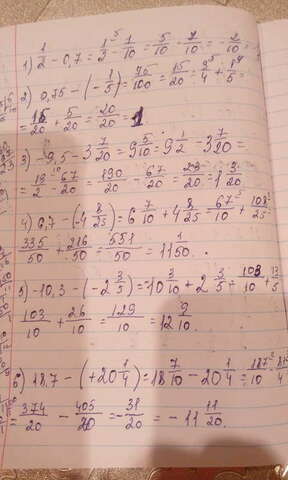 1) 1/2 - 0,7 = 1/2 - 7/10 = 5/10 - 7/10 = -2/10 =
2) 0,75 - (-1/5) = 75/100 = 15/20 = 3/4 +
= 15/20 + 5/20 = 20/20 = 1
3) -9,5 - 3 7/20 = 9 5/10 = 9 1/2 - 3 7/20 =
= 19/2 - 67/20 = 190/20 - 67/20 = 23/20 = 1 3/20
4) 6,7 - (-4 8/25) = 6 7/10 + 4 8/25 = 67/10 + 108/25
335/50 + 216/50 = 551/50 = 11 1/50.
5) -10,3 - (-2 3/5) = -10 3/10 + 2 3/5 = 103/10 + 13/5
103/10 + 26/10 = 129/10 = 12 9/10.
6) 18,7 - (+20 1/4) = 18 7/10 - 20 1/4 = 187/10
= 374/20 - 405/20 = -31/20 = -11 11/20.